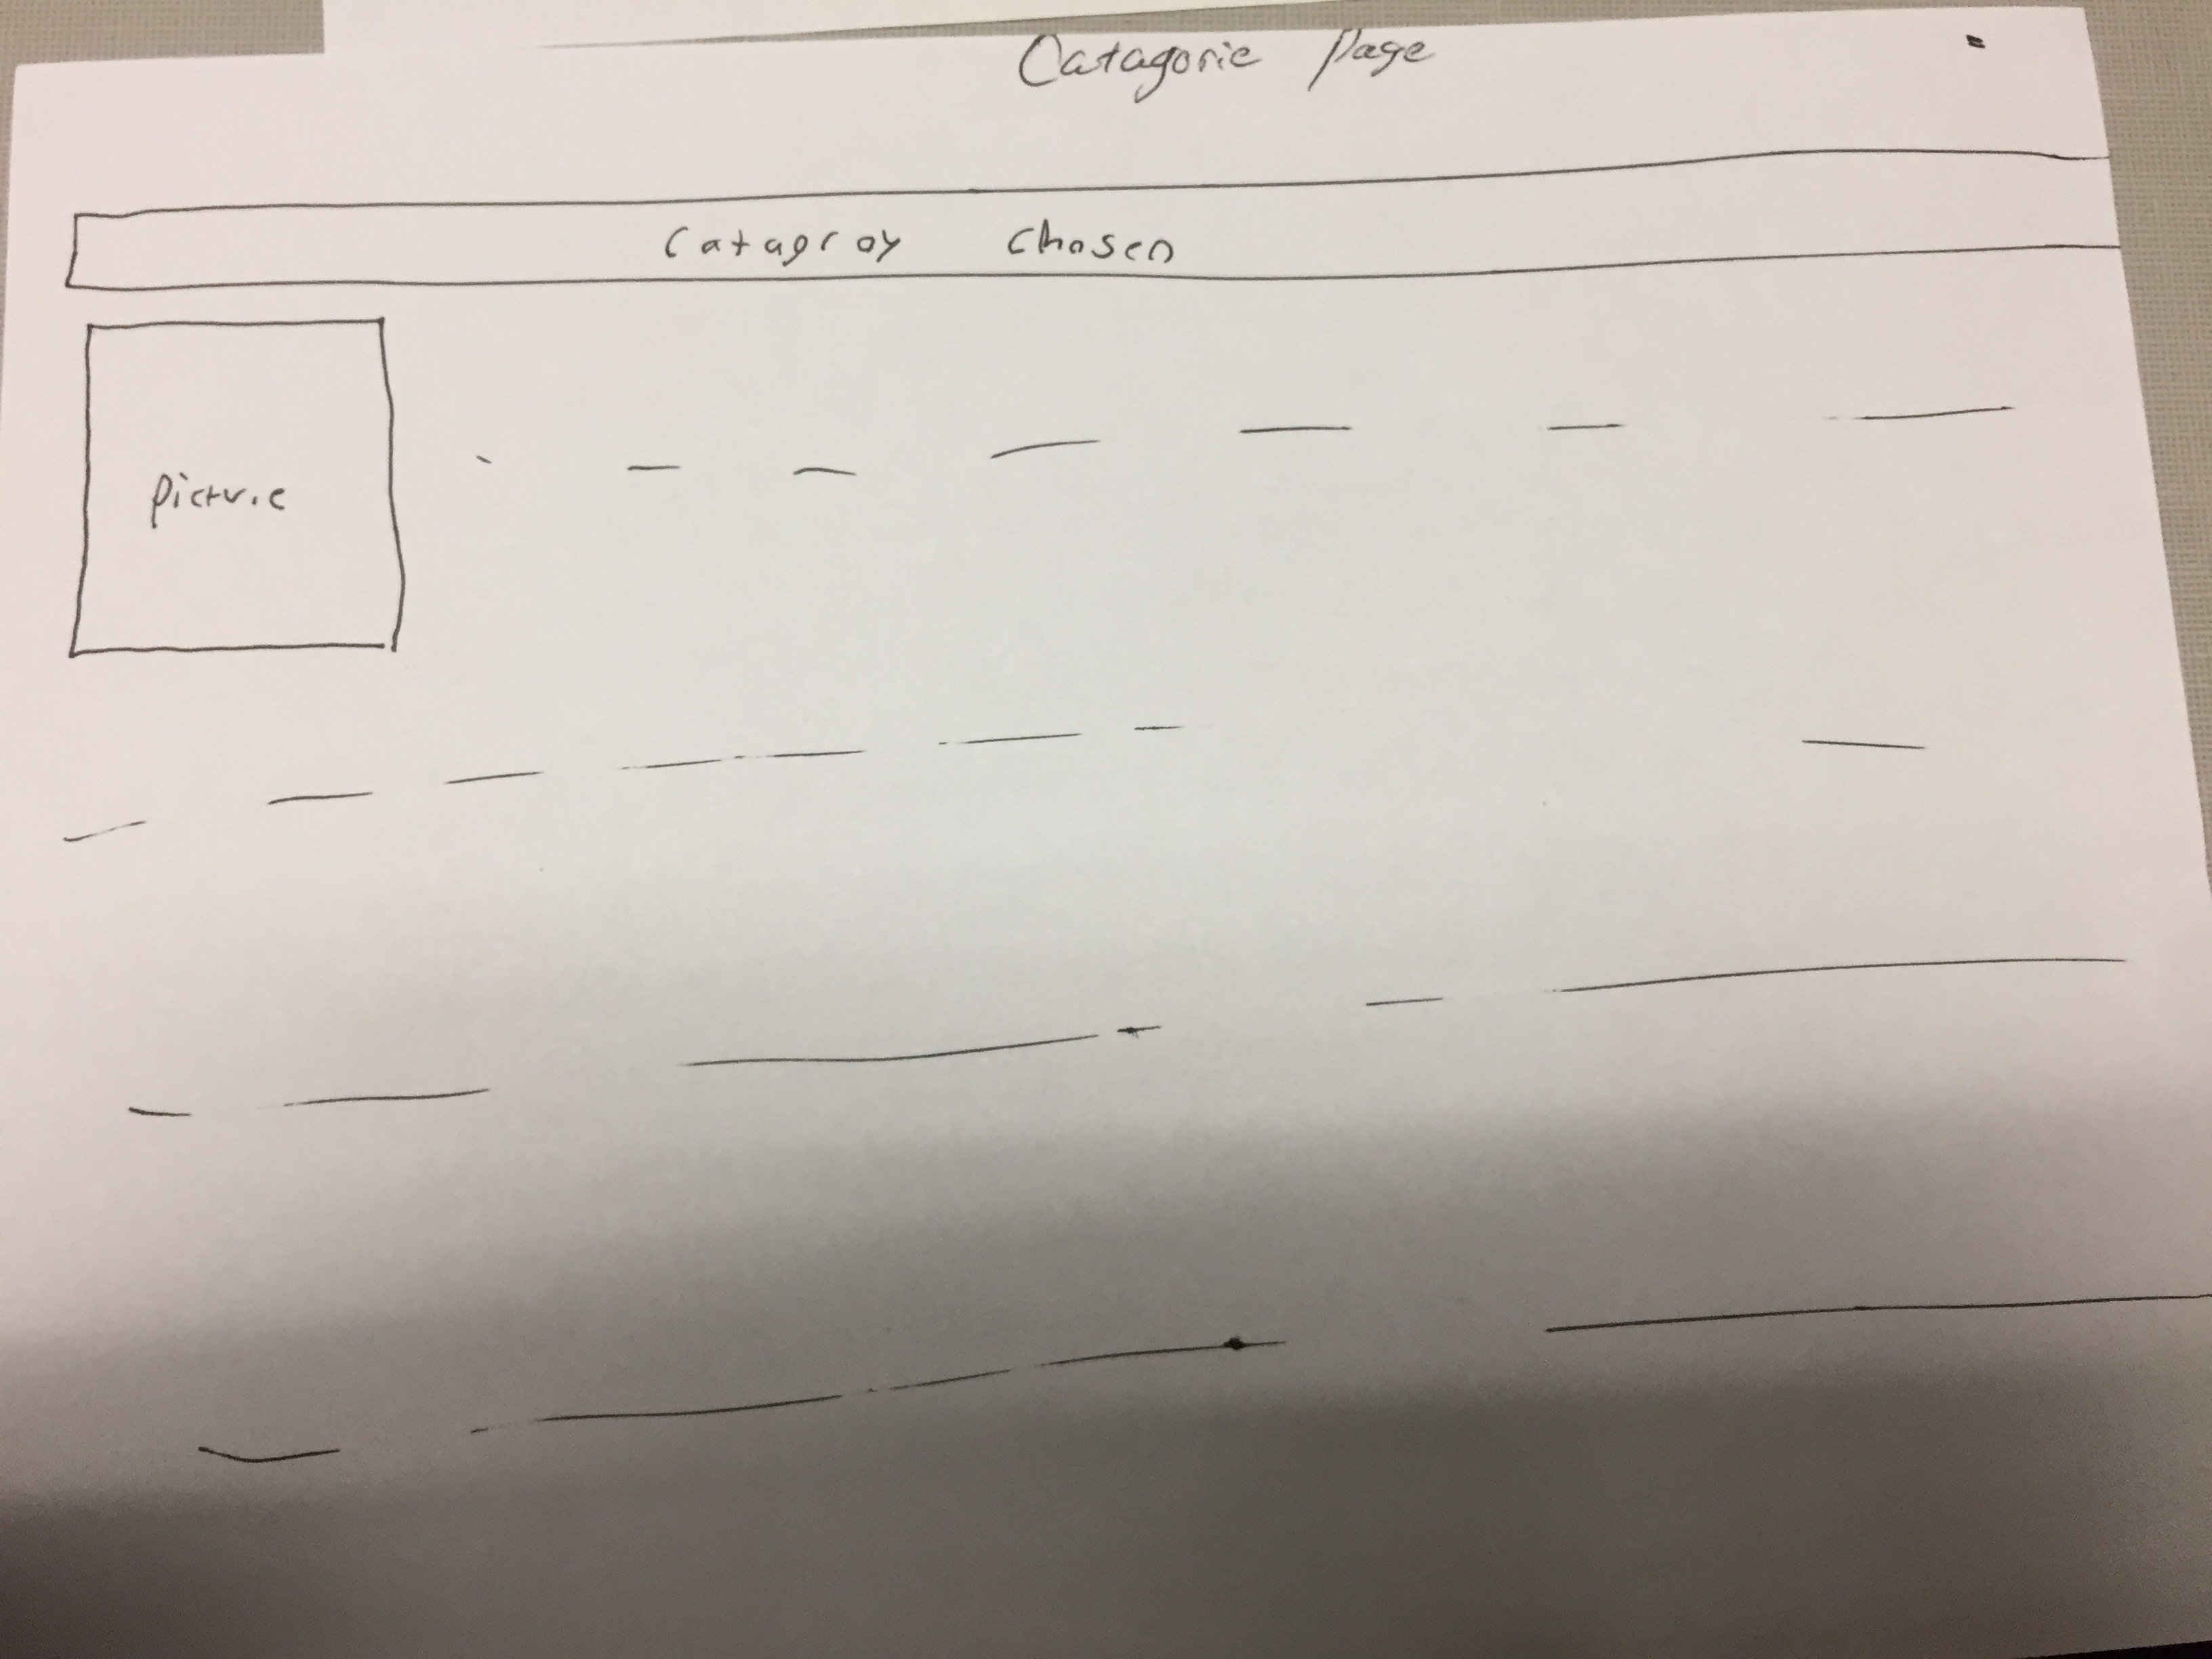 Catagorie Page
Catagroy Chosen
Picture